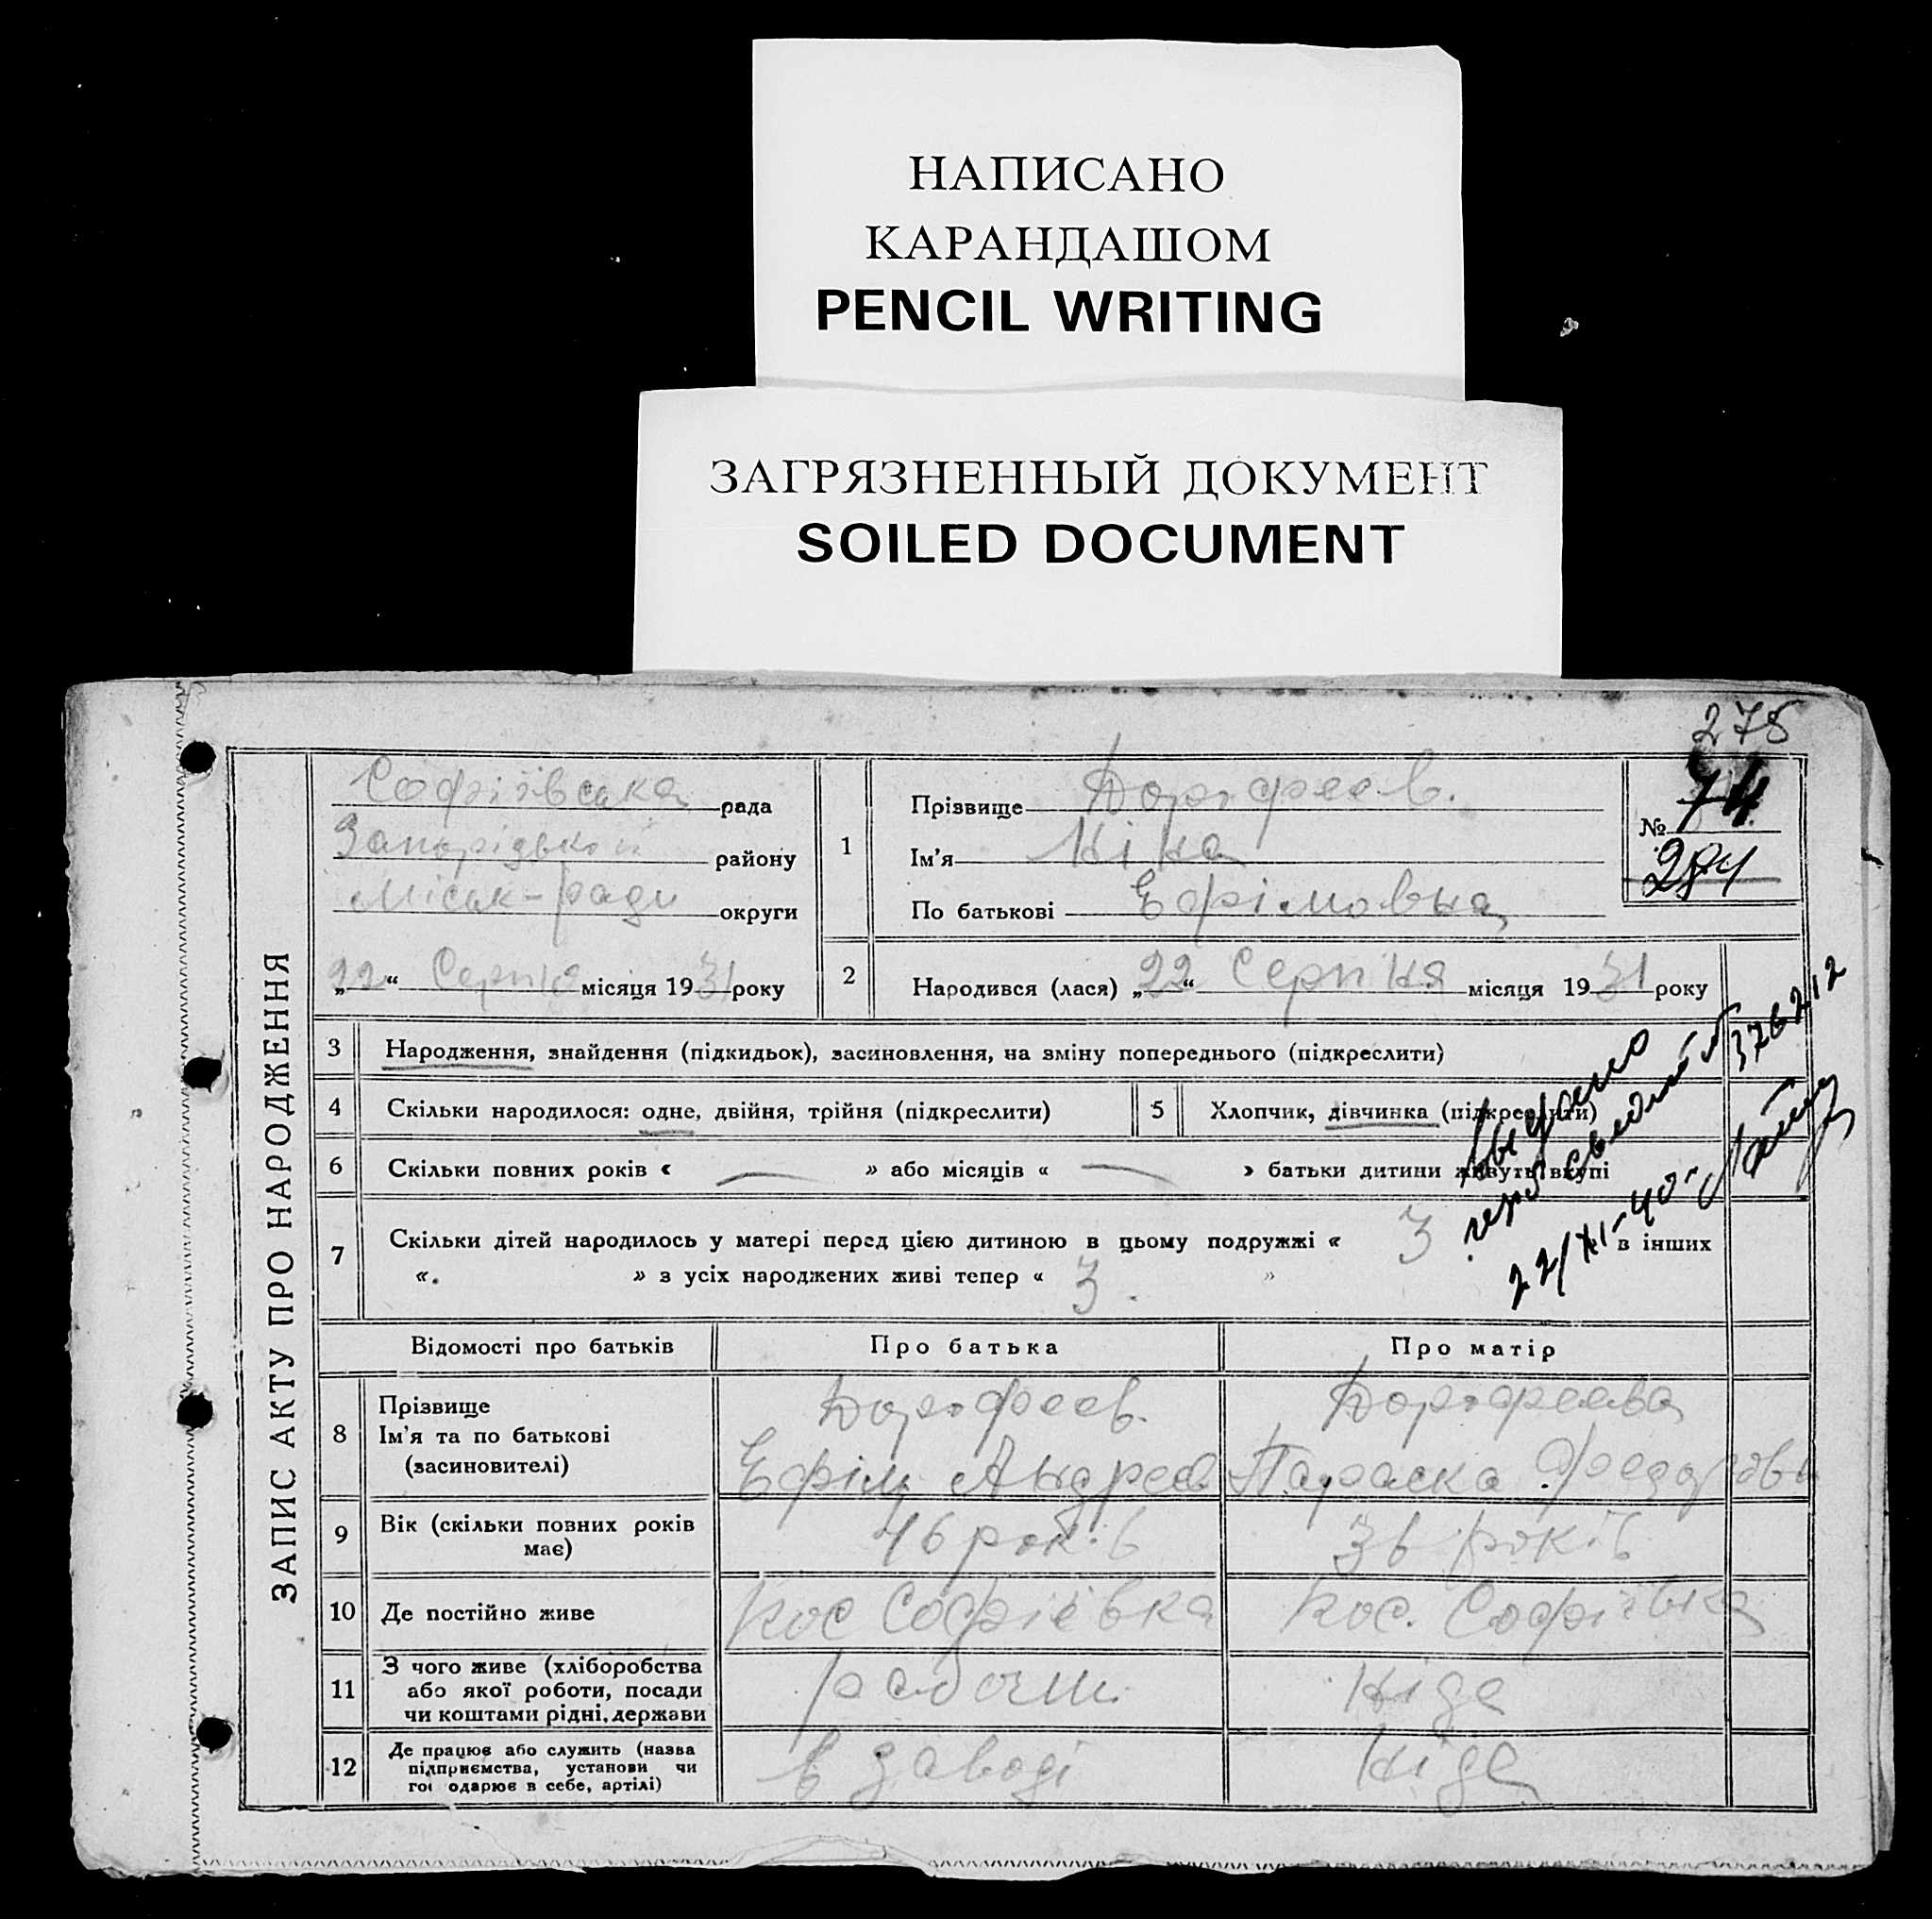 НАПИСАНО
КАРАНДАШОМ
PENCIL WRITING
ЗАГРЯЗНЕННЫЙ ДОКУМЕНТ
SOILED DOCUMENT
278
ЗАПИС АКТУ ПРО НАРОДЖЕННЯ
Софіївська рада
Запорізької району
Міськ-ради округи
„22“ Серпня місяця 1931 року
1
Прізвище Дорофеев.
Ім'я Ніна
По батькові Ефімовна
№ 74
284
2
Народився (лася) „22“ Серпня місяця 1931 року
3 Народження, знайдення (підкидьок), засиновлення, на зміну попереднього (підкреслити)
4 Скільки народилося: одне, двійня, трійня (підкреслити)
5 Хлопчик, дівчинка (підкреслити)
6 Скільки повних років « — » або місяців « — » батьки дитини живуть вкупі
7 Скільки дітей народилось у матері перед цією дитиною в цьому подружжі « 3 в інших
«. » з усіх народжених живі тепер « 3. »
22/XI-40
Відомості про батьків Про батька Про матір
8 Прізвище
Ім'я та по батькові
(засиновителі)
Дорофеев.
Ефім Андреев
Дорофеева
Параска Федоровн
9 Вік (скільки повних років
має)
46 років
36 років
10 Де постійно живе
пос Софіевка
пос. Софіївка
11 З чого живе (хліборобства
або якої роботи, посади
чи коштами рідні, держави
рабочи
Ніде
12 Де працює або служить (назва
підприємства, установи чи
господарює в себе, артілі)
в заводі
Ніде